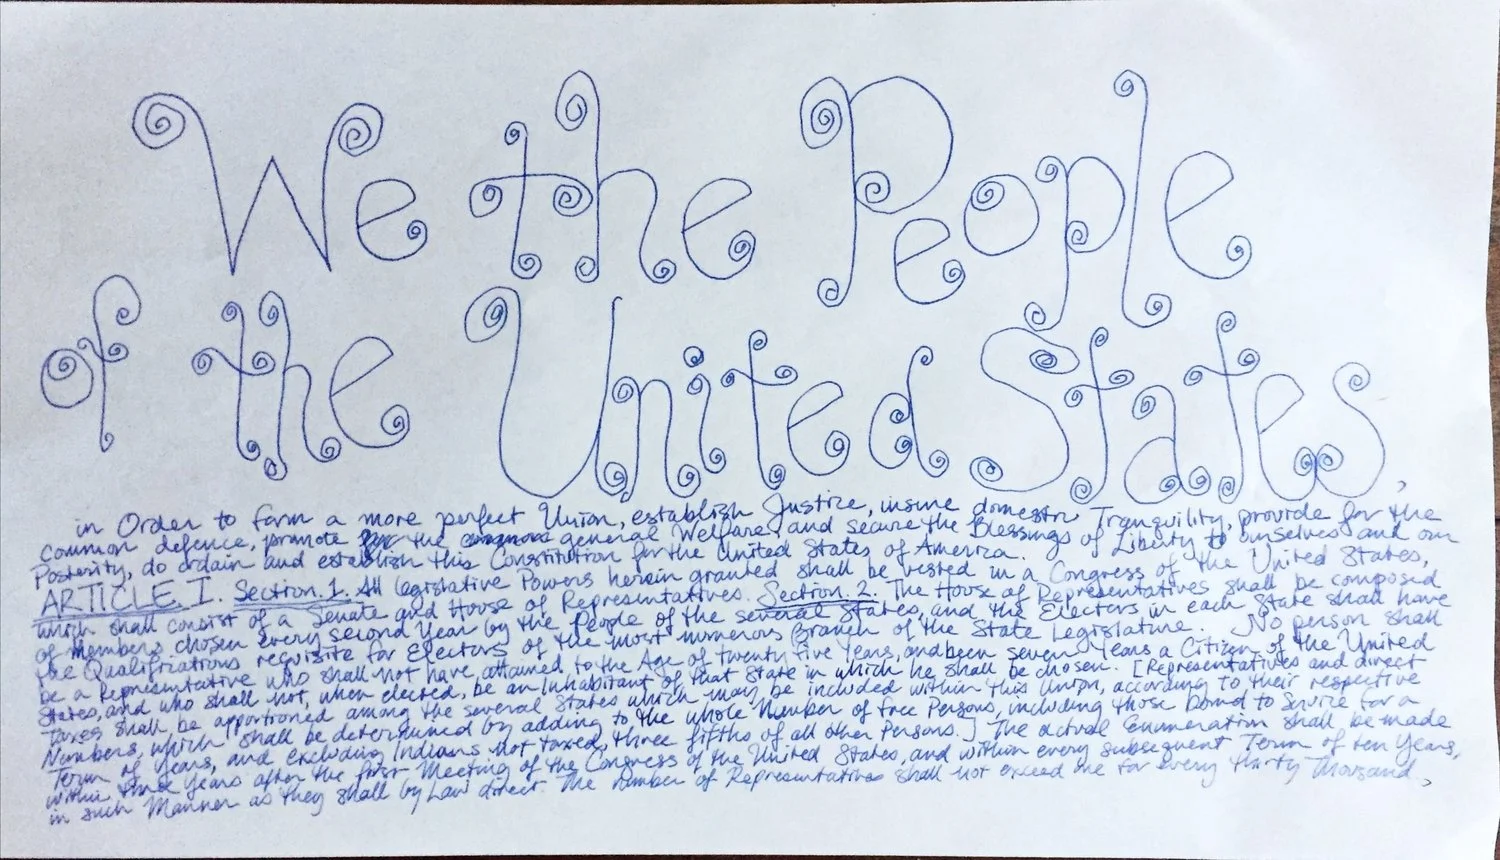 We the People
of the United States,
in Order to form a more perfect Union, establish Justice, insure domestic Tranquility, provide for the
common defence, promote the general Welfare, and secure the Blessings of Liberty to ourselves and our
Posterity, do ordain and establish this Constitution for the United States of America.
ARTICLE I. Section. 1. All legislative Powers herein granted shall be vested in a Congress of the United States,
which shall consist of a Senate and House of Representatives. Section. 2. The House of Representatives shall be composed
of members chosen every second Year by the People of the several States, and the Electors in each State shall have
the Qualifications requisite for Electors of the most numerous Branch of the State Legislature. No person shall
be a Representative who shall not have attained to the Age of twenty five Years, and been seven Years a Citizen of the United
States, and who shall not, when elected, be an Inhabitant of that State in which he shall be chosen. [Representatives and direct
Taxes shall be apportioned among the several States which may be included within this Union, according to their respective
Numbers, which shall be determined by adding to the whole Number of free Persons, including those bound to Service for a
Term of Years, and excluding Indians not taxed, three fifths of all other Persons.] The actual Enumeration shall be made
within three Years after the first Meeting of the Congress of the United States, and within every subsequent Term of ten Years,
in such Manner as they shall by Law direct. The number of Representatives shall not exceed one for every thirty Thousand,